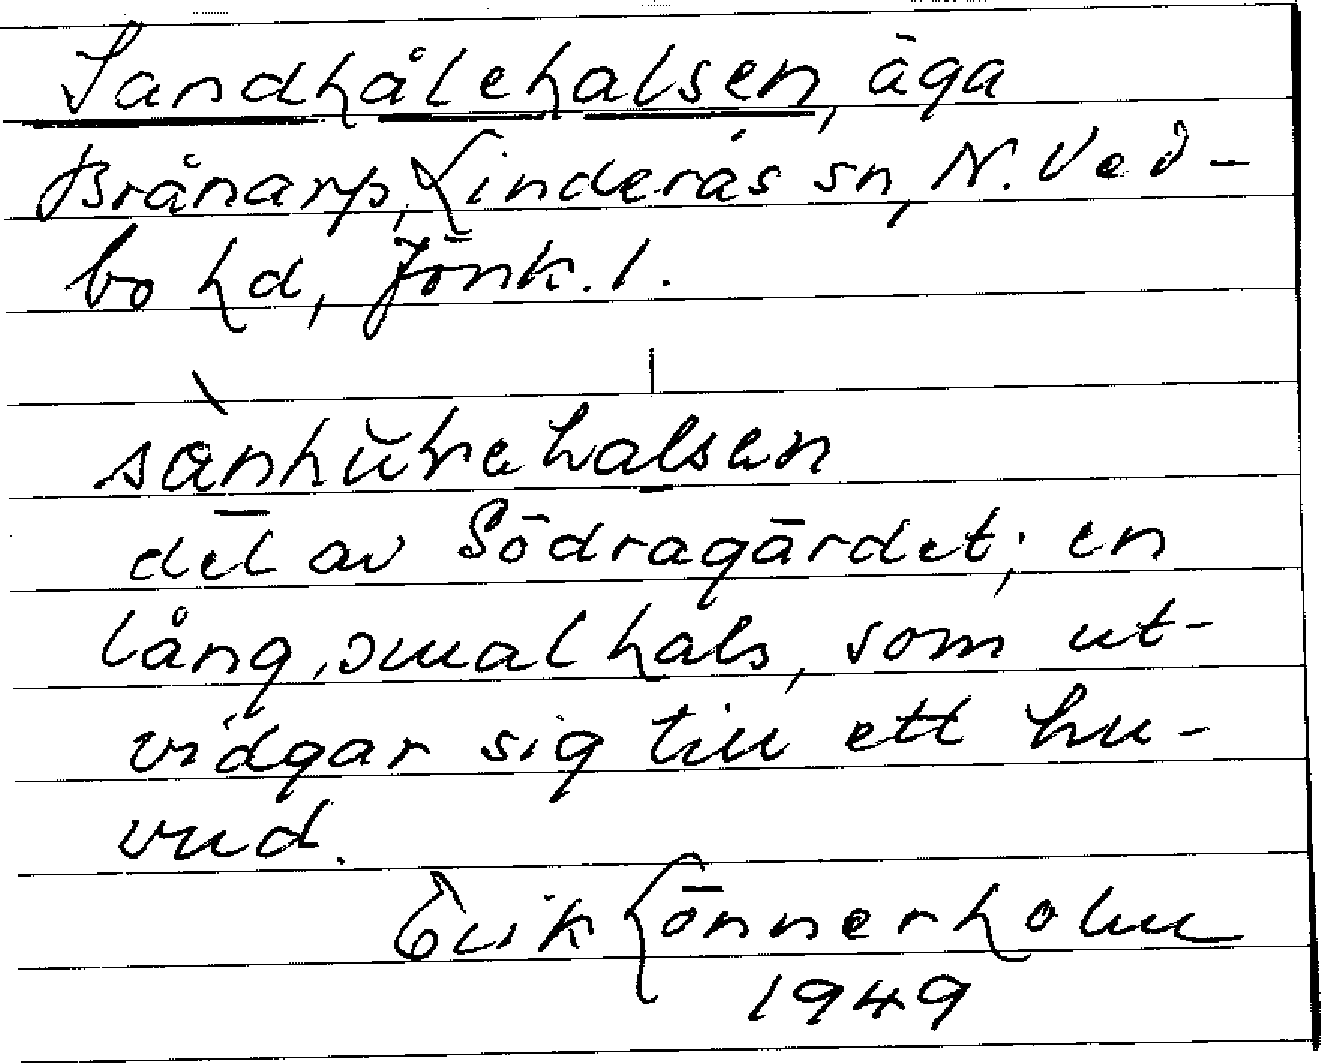 Sandhålehalsen, äga
Brånarp, Linderås sn, N. Ved-
bo hd, Jönk. l.
del av Södragärdet; en
lång, smal hals, som ut-
vidgar sig till ett hu-
vud.
Erik Lönnerholm
1949